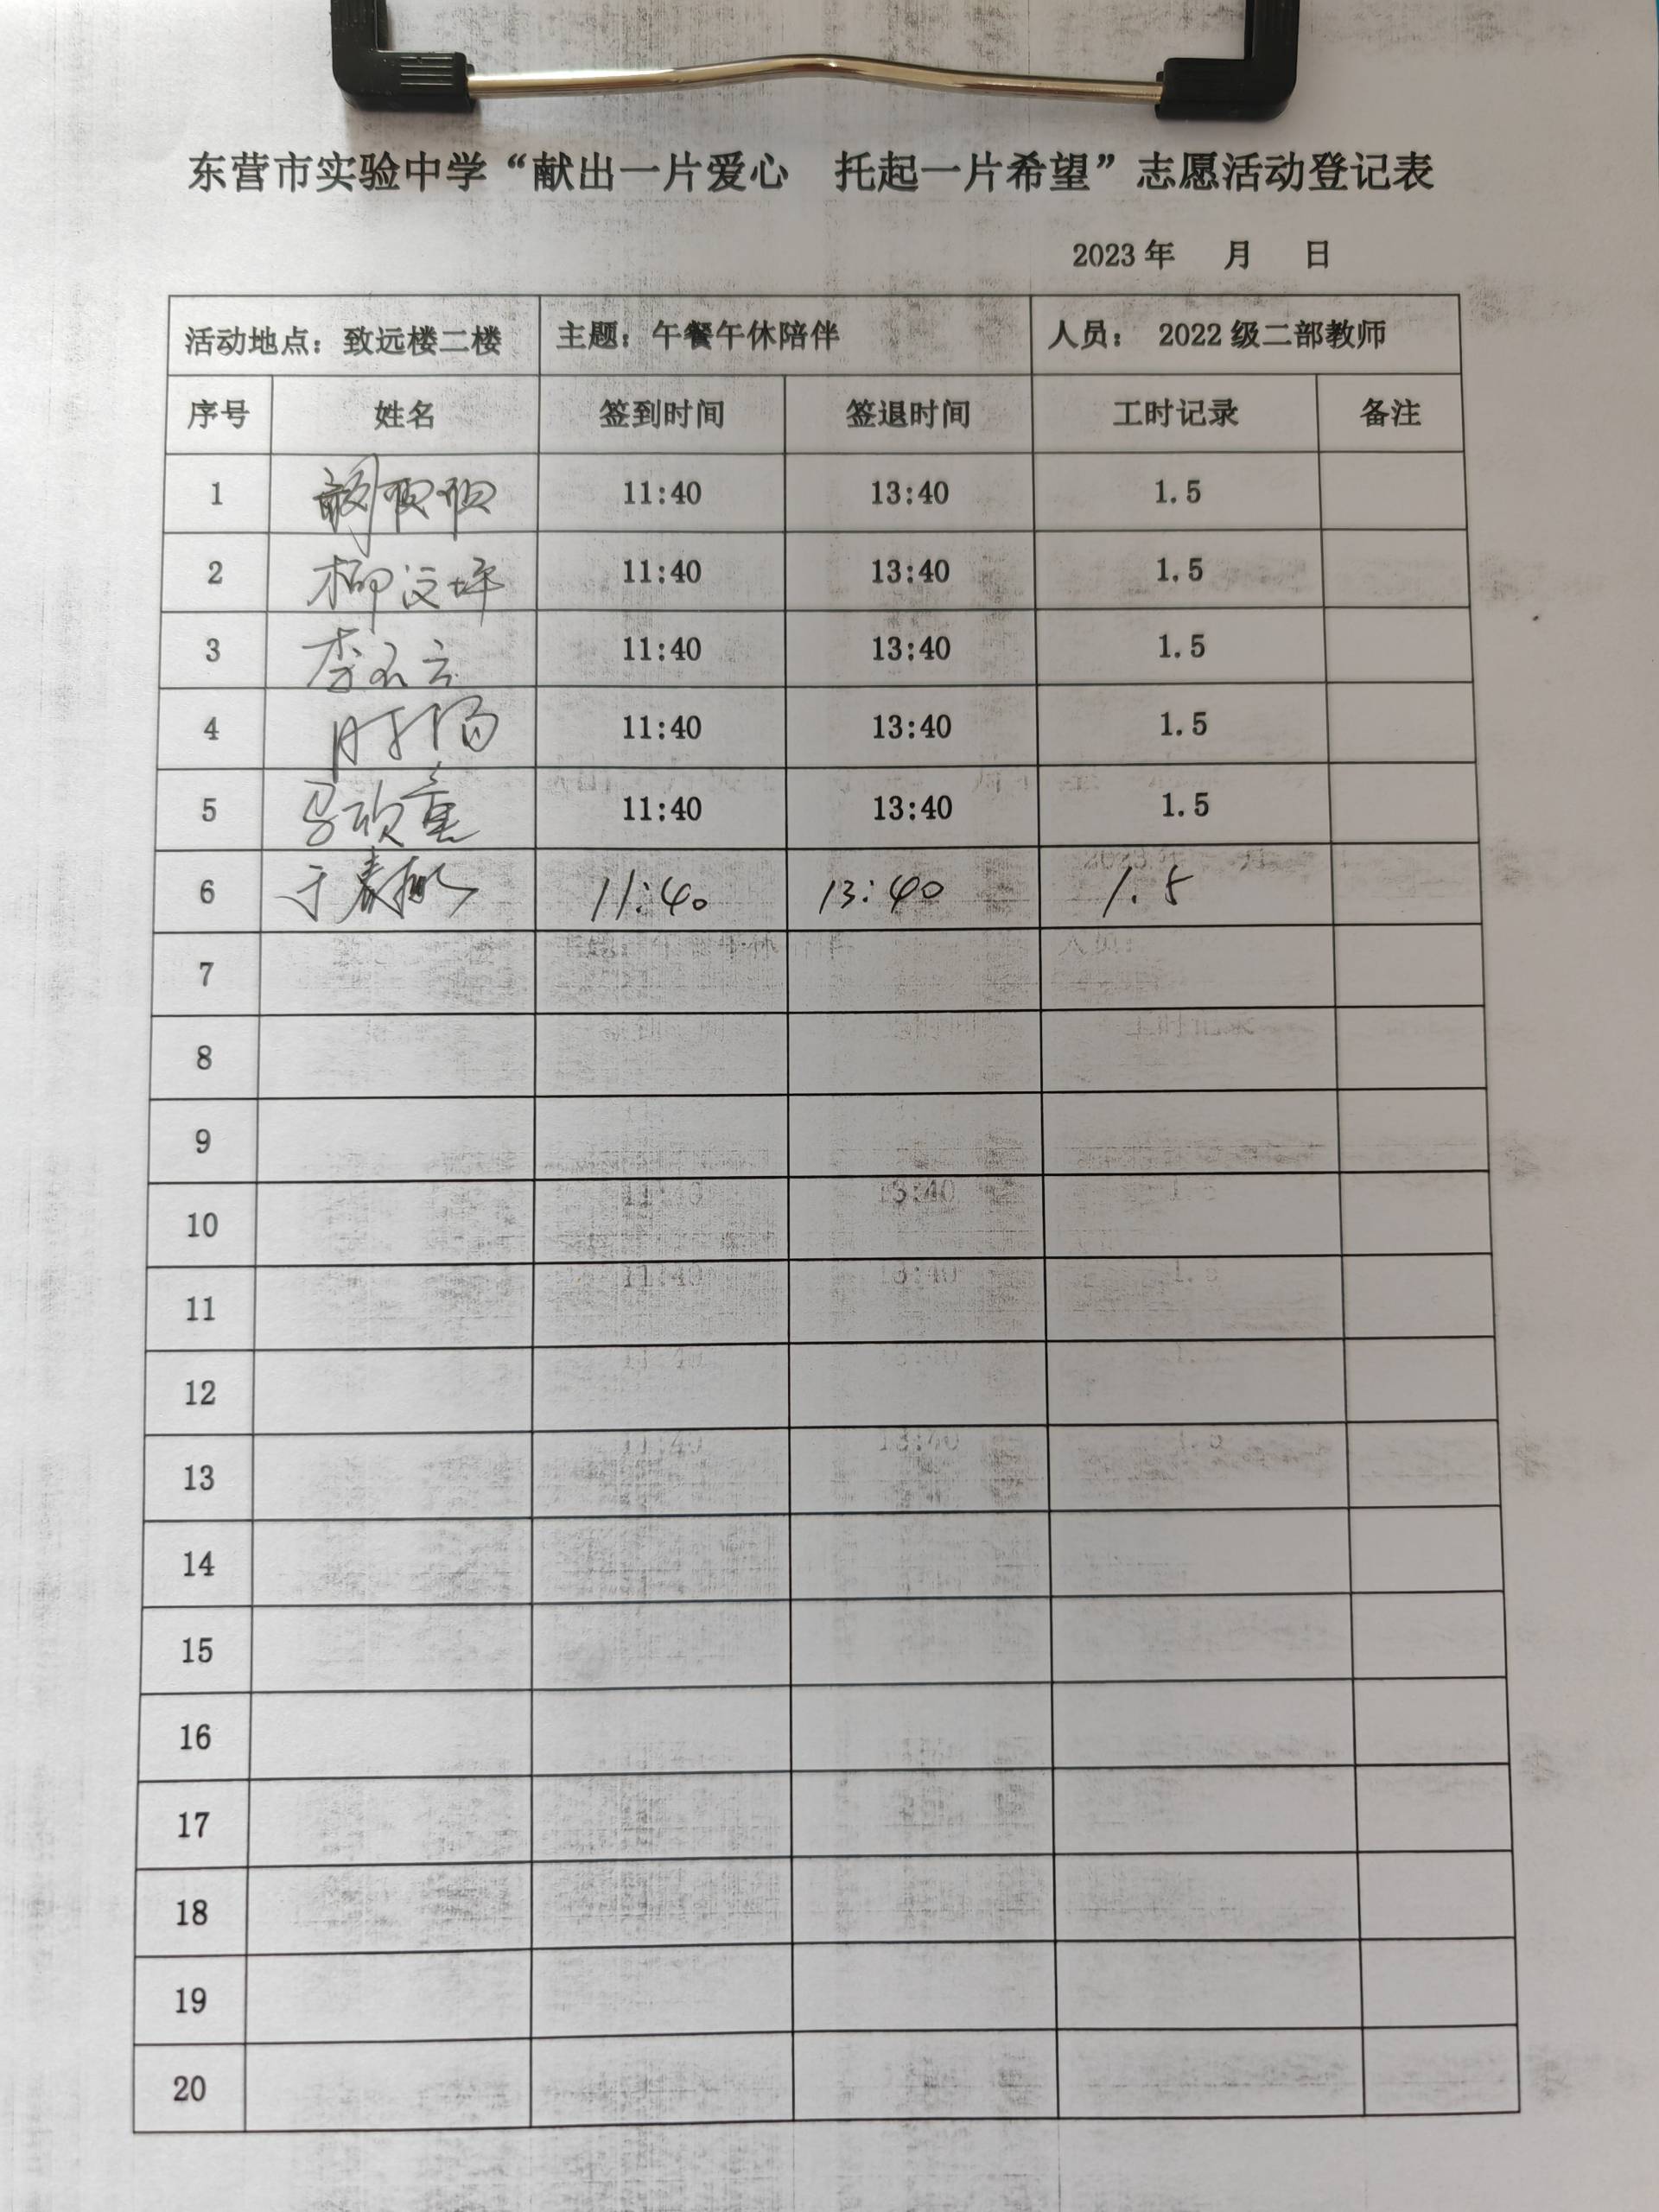 东营市实验中学“献出一片爱心 托起一片希望”志愿活动登记表
2023 年 月 日
活动地点：致远楼二楼 主题：午餐午休陪伴 人员： 2022 级二部教师
序号 姓名 签到时间 签退时间 工时记录 备注
1 11:40 13:40 1.5
2 柳汶坪 11:40 13:40 1.5
3 李 云 11:40 13:40 1.5
4 时 11:40 13:40 1.5
5 马 童 11:40 13:40 1.5
6 于春 11:40 13:40 1.5
7
8
9
10
11
12
13
14
15
16
17
18
19
20